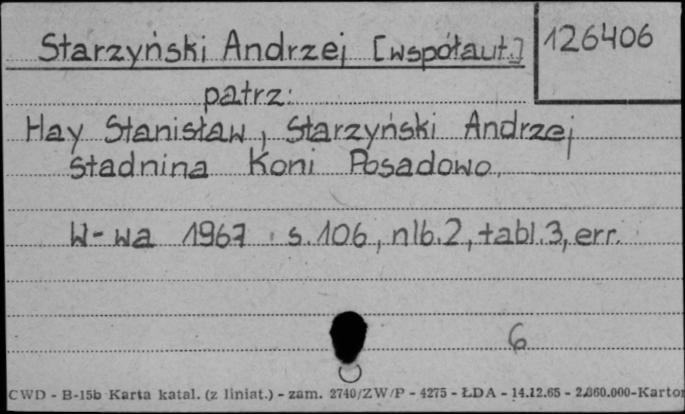 Starzyński Andrzej [współaut.] 126406
patrz:
Hay Stanisław, Starzyński Andrzej
Stadnina Koni Posadowo.
W-wa 1967 . s. 106, nlb. 2, tabl. 3, err.
6
CWD - B-15b Karta katal. (z liniat.) - zam. 2740/ZW/P - 4275 - ŁDA - 14.12.65 - 2.360.000-Karton